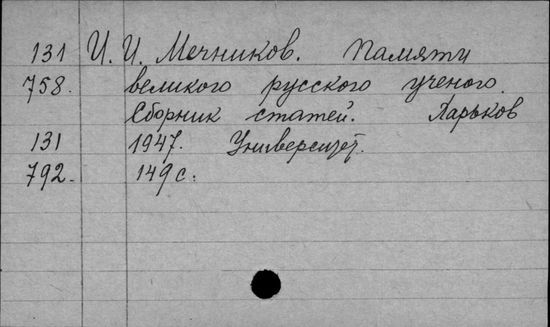 131 И. И. Мечников. Памяти
758. великого русского ученого.
Сборник статей. Харьков
131 1947. Университет.
792. 149 с.